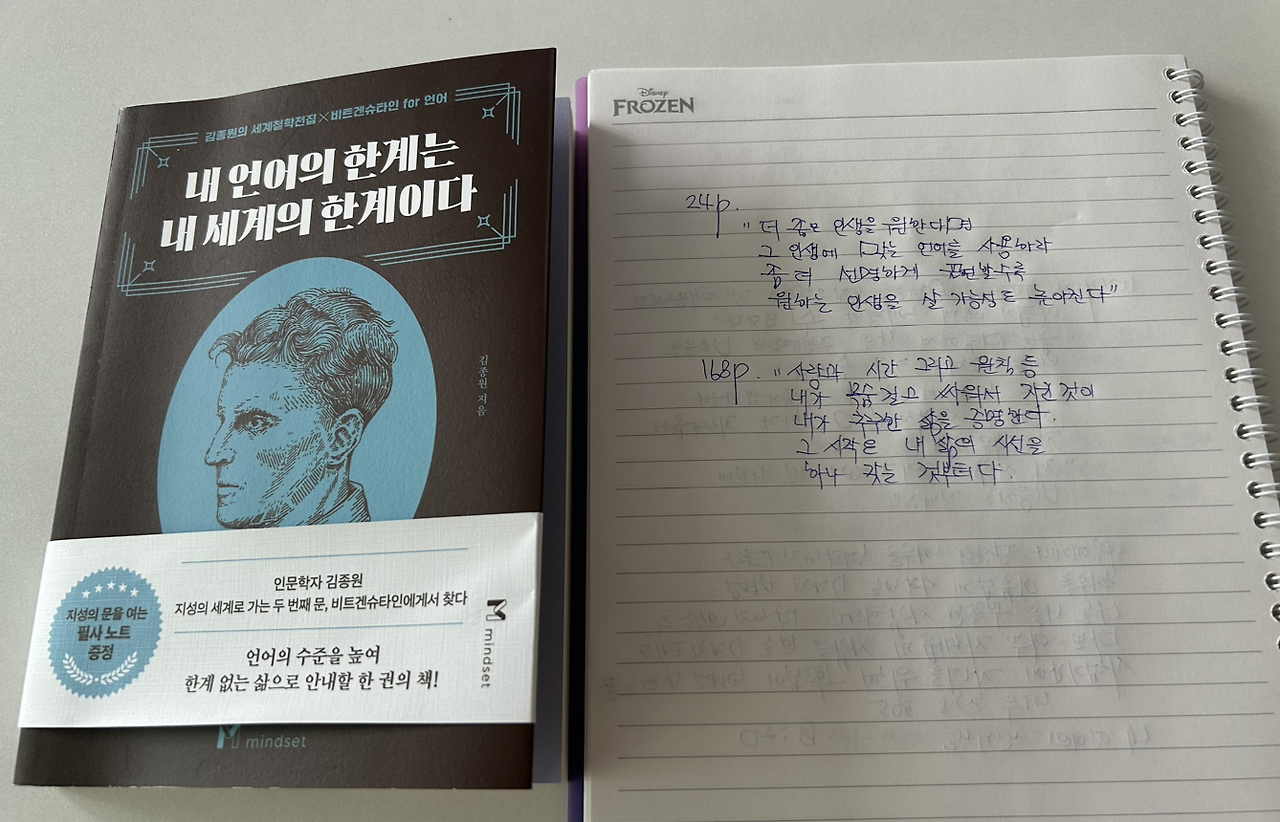 김종원의 세계철학전집×비트겐슈타인 for 언어
내 언어의 한계는
내 세계의 한계이다
김종원 지음
지성의 문을 여는
필사 노트
증정
인문학자 김종원
지성의 세계로 가는 두 번째 문, 비트겐슈타인에게서 찾다
언어의 수준을 높여
한계 없는 삶으로 안내할 한 권의 책!
mindset
mindset
Disney
FROZEN
24p.
"더 좋은 인생을 원한다면
그 인생에 맞는 언어를 사용하라
좀 더 선명하게 표현할수록
원하는 인생을 살 가능성도 높아진다"
168p. "사랑과 시간 그리고 원칙 등
내가 목숨 걸고 싸워서 지킨 것이
내가 추구한 삶을 증명한다.
그 시작은 내 삶의 시선을
하나 갖는 것부터다.